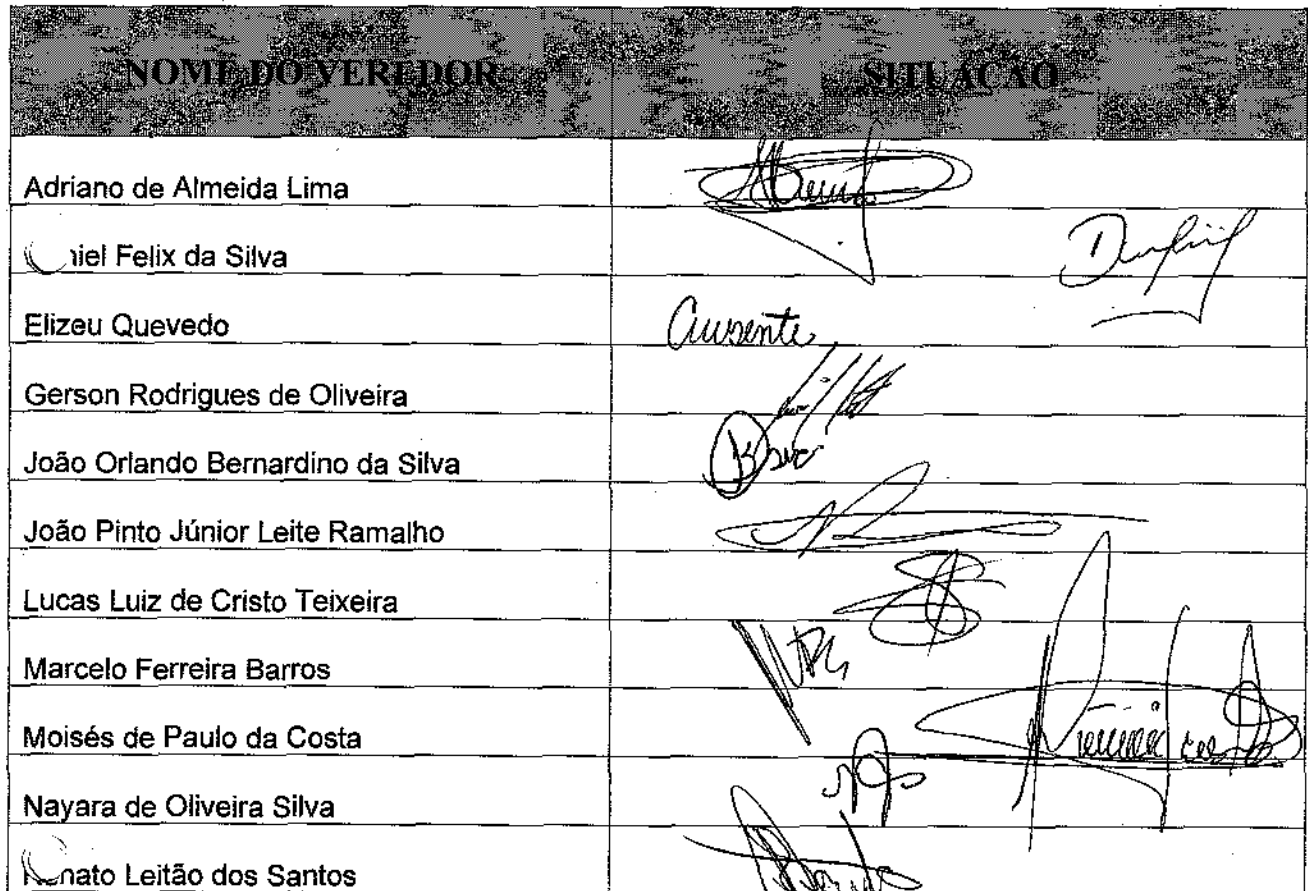 NOME DO VEREDOR SITUAÇÃO
Adriano de Almeida Lima
niel Felix da Silva
Elizeu Quevedo Ausente
Gerson Rodrigues de Oliveira
João Orlando Bernardino da Silva
João Pinto Júnior Leite Ramalho
Lucas Luiz de Cristo Teixeira
Marcelo Ferreira Barros
Moisés de Paulo da Costa
Nayara de Oliveira Silva
nato Leitão dos Santos